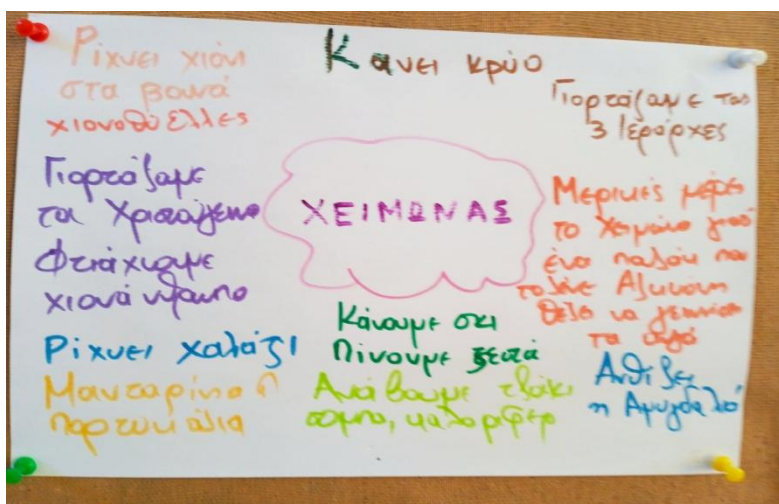 Ρίχνει χιόνι
στα βουνά
χιονοθύελλες
Κανει κρύο
Γιορτάζαμε τους
3 Ιεράρχες
Γιορτάζαμε
τα Χριστούγεννα
Φτιάχνουμε
χιονάνθρωπο
ΧΕΙΜΩΝΑΣ
Μερικές μέρες
το Χειμώνα
ένα πουλάκι που
το λένε Αλκυόνη
θέλει να γεννήσει
τα αυγά
Ρίχνει χαλάζι
Κάνουμε σκι
Πίνουμε ζεστά
Μανταρίνια
πορτοκάλια
Ανάβουμε τζάκι
σόμπα, καλοριφέρ
Ανθίζει
η Αμυγδαλιά